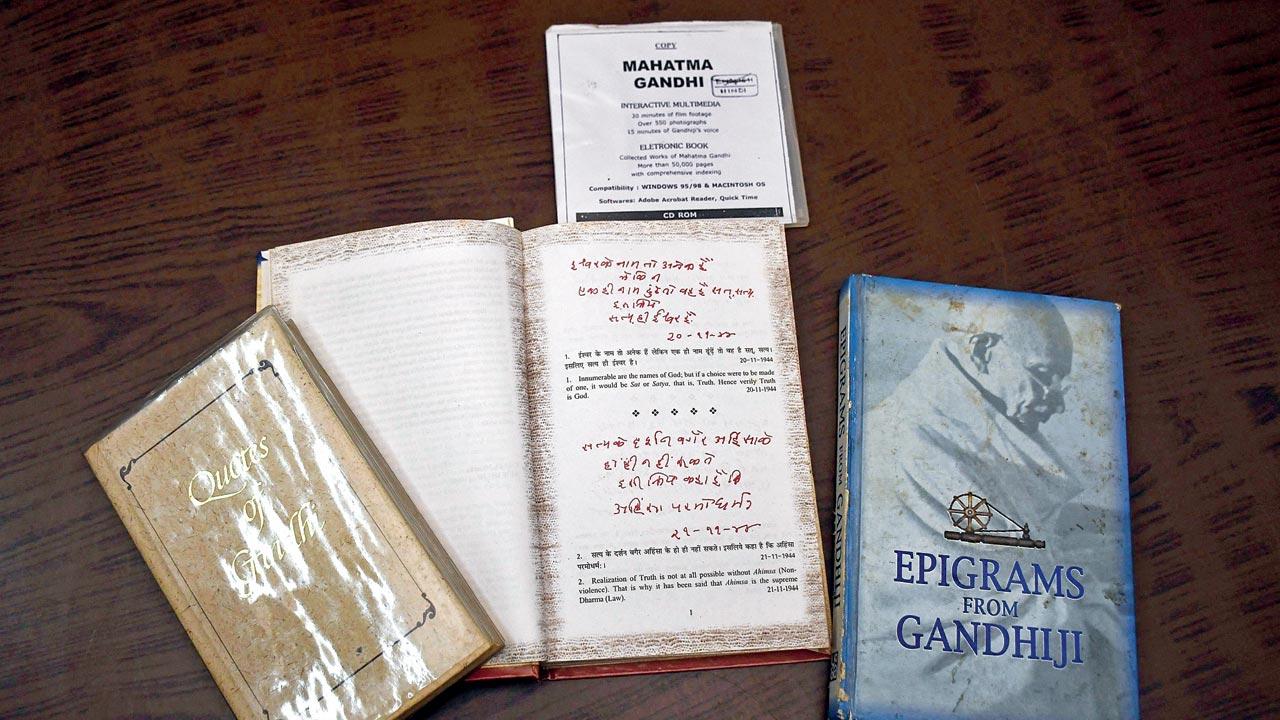 COPY
MAHATMA
GANDHI
HINDI
INTERACTIVE MULTIMEDIA
30 minutes of film footage
Over 550 photographs
15 minutes of Gandhiji's voice
ELETRONIC BOOK
Collected Works of Mahatma Gandhi
More than 50,000 pages
with comprehensive indexing
Compatibility : WINDOWS 95/98 & MACINTOSH OS
Softwares: Adobe Acrobat Reader, Quick Time
CD ROM
ईश्वरके नाम तो अनेक हैं
लेकिन
एक ही नाम ढुंढें तो वह है सत्, सत्य.
इसलिये
सत्य ही ईश्वर है.
२०-११-४४
1. ईश्वर के नाम तो अनेक हैं लेकिन एक ही नाम ढूंढ़ें तो वह है सत्, सत्य।
इसलिए सत्य ही ईश्वर है। 20-11-1944
1. Innumerable are the names of God; but if a choice were to be made
of one, it would be Sat or Satya, that is, Truth. Hence verily Truth
is God. 20-11-1944
सत्यके दर्शन बगैर अहिंसाके
हो ही नहीं सकते
इसी लिये कहा है कि
अहिंसा परमोधर्मः
२१-११-४४
2. सत्य के दर्शन बगैर अहिंसा के हो ही नहीं सकते। इसलिये कहा है कि अहिंसा
परमोधर्मः। 21-11-1944
2. Realization of Truth is not at all possible without Ahimsa (Non-
violence). That is why it has been said that Ahimsa is the supreme
Dharma (Law). 21-11-1944
1
Quotes
of
Gandhi
EPIGRAMS FROM GANDHIJI
EPIGRAMS
FROM
GANDHIJI